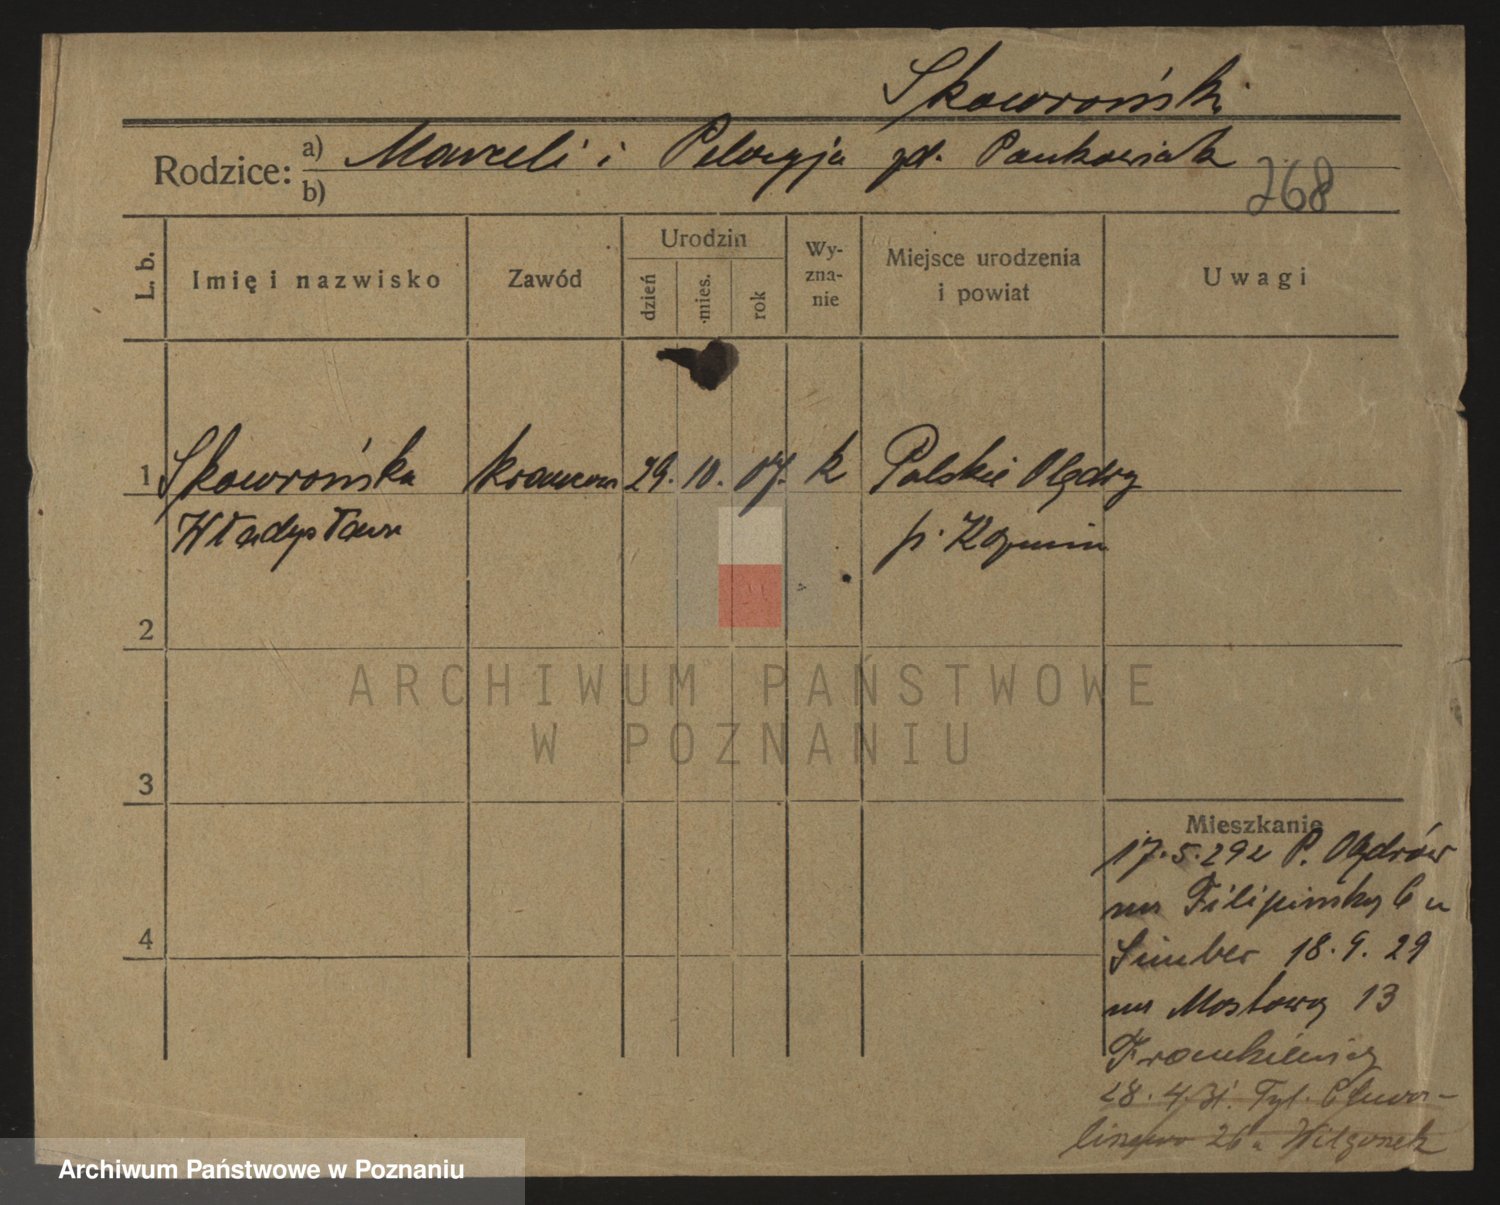 Skowroński
Rodzice: a) Marceli i Pelagja zd. Pankowiak
b)
268
L. b. Imię i nazwisko Zawód Urodzin dzień mies. rok Wyznanie Miejsce urodzenia i powiat Uwagi
1 Skowrońska krawcowa 29. 10. 07. k Polskie Olędry
Władysława p. Koźmin
2
3
4
Mieszkanie
17.5.29 z P. Olędrów
na
18.9.29
na Mostową 13
Frankiewicz
28.4.31.
26
ARCHIWUM PAŃSTWOWE
W POZNANIU
Archiwum Państwowe w Poznaniu